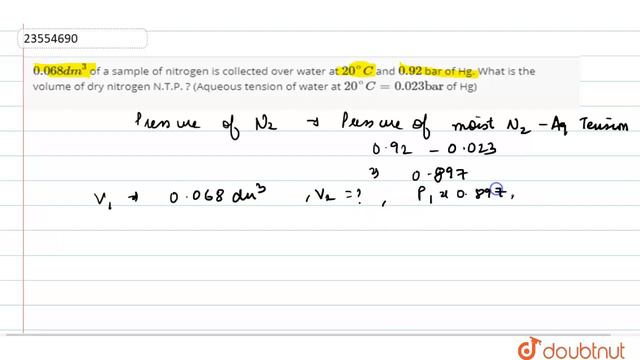 23554690
0.068dm³ of a sample of nitrogen is collected over water at 20°C and 0.92 bar of Hg. What is the
volume of dry nitrogen N.T.P. ? (Aqueous tension of water at 20°C = 0.023bar of Hg)
Pressure of N₂ → Pressure of moist N₂ - Aq Tension
0.92 - 0.023
⇒ 0.897
V₁ → 0.068 dm³ , V₂ = ? , P₁ = 0.897,
doubtnut